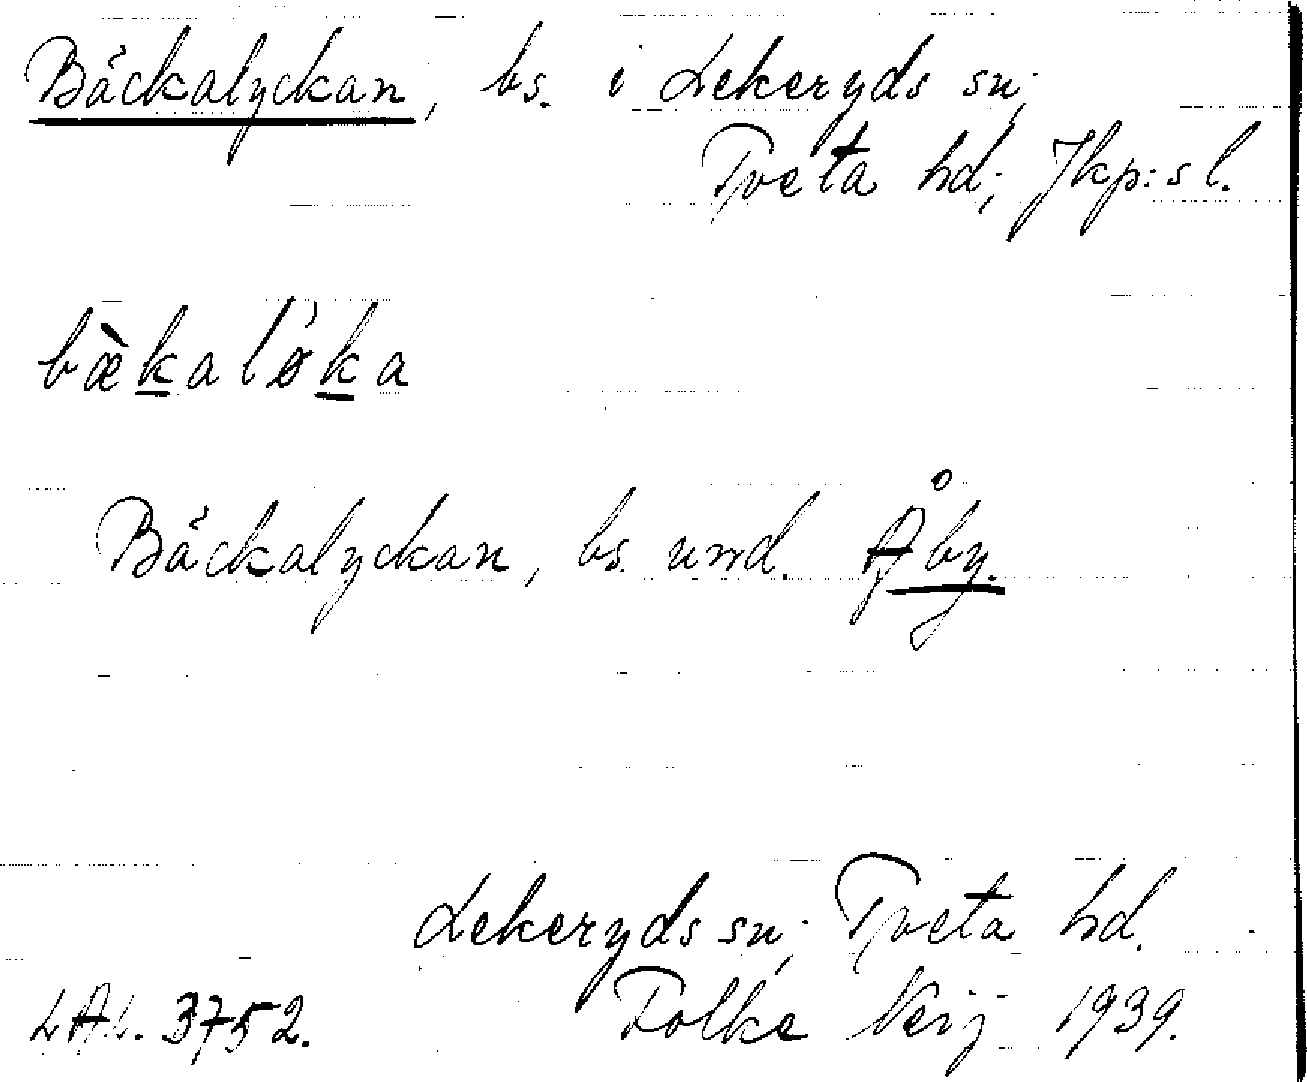 Bäckalyckan, bs. i Lekeryds sn,
Tveta hd, Jkp:s l.
bæ̀kalø̍ka
Bäckalyckan, bs. und. Åby.
Lekeryds sn, Tveta hd.
LAL. 3752. Folke Neij 1939.